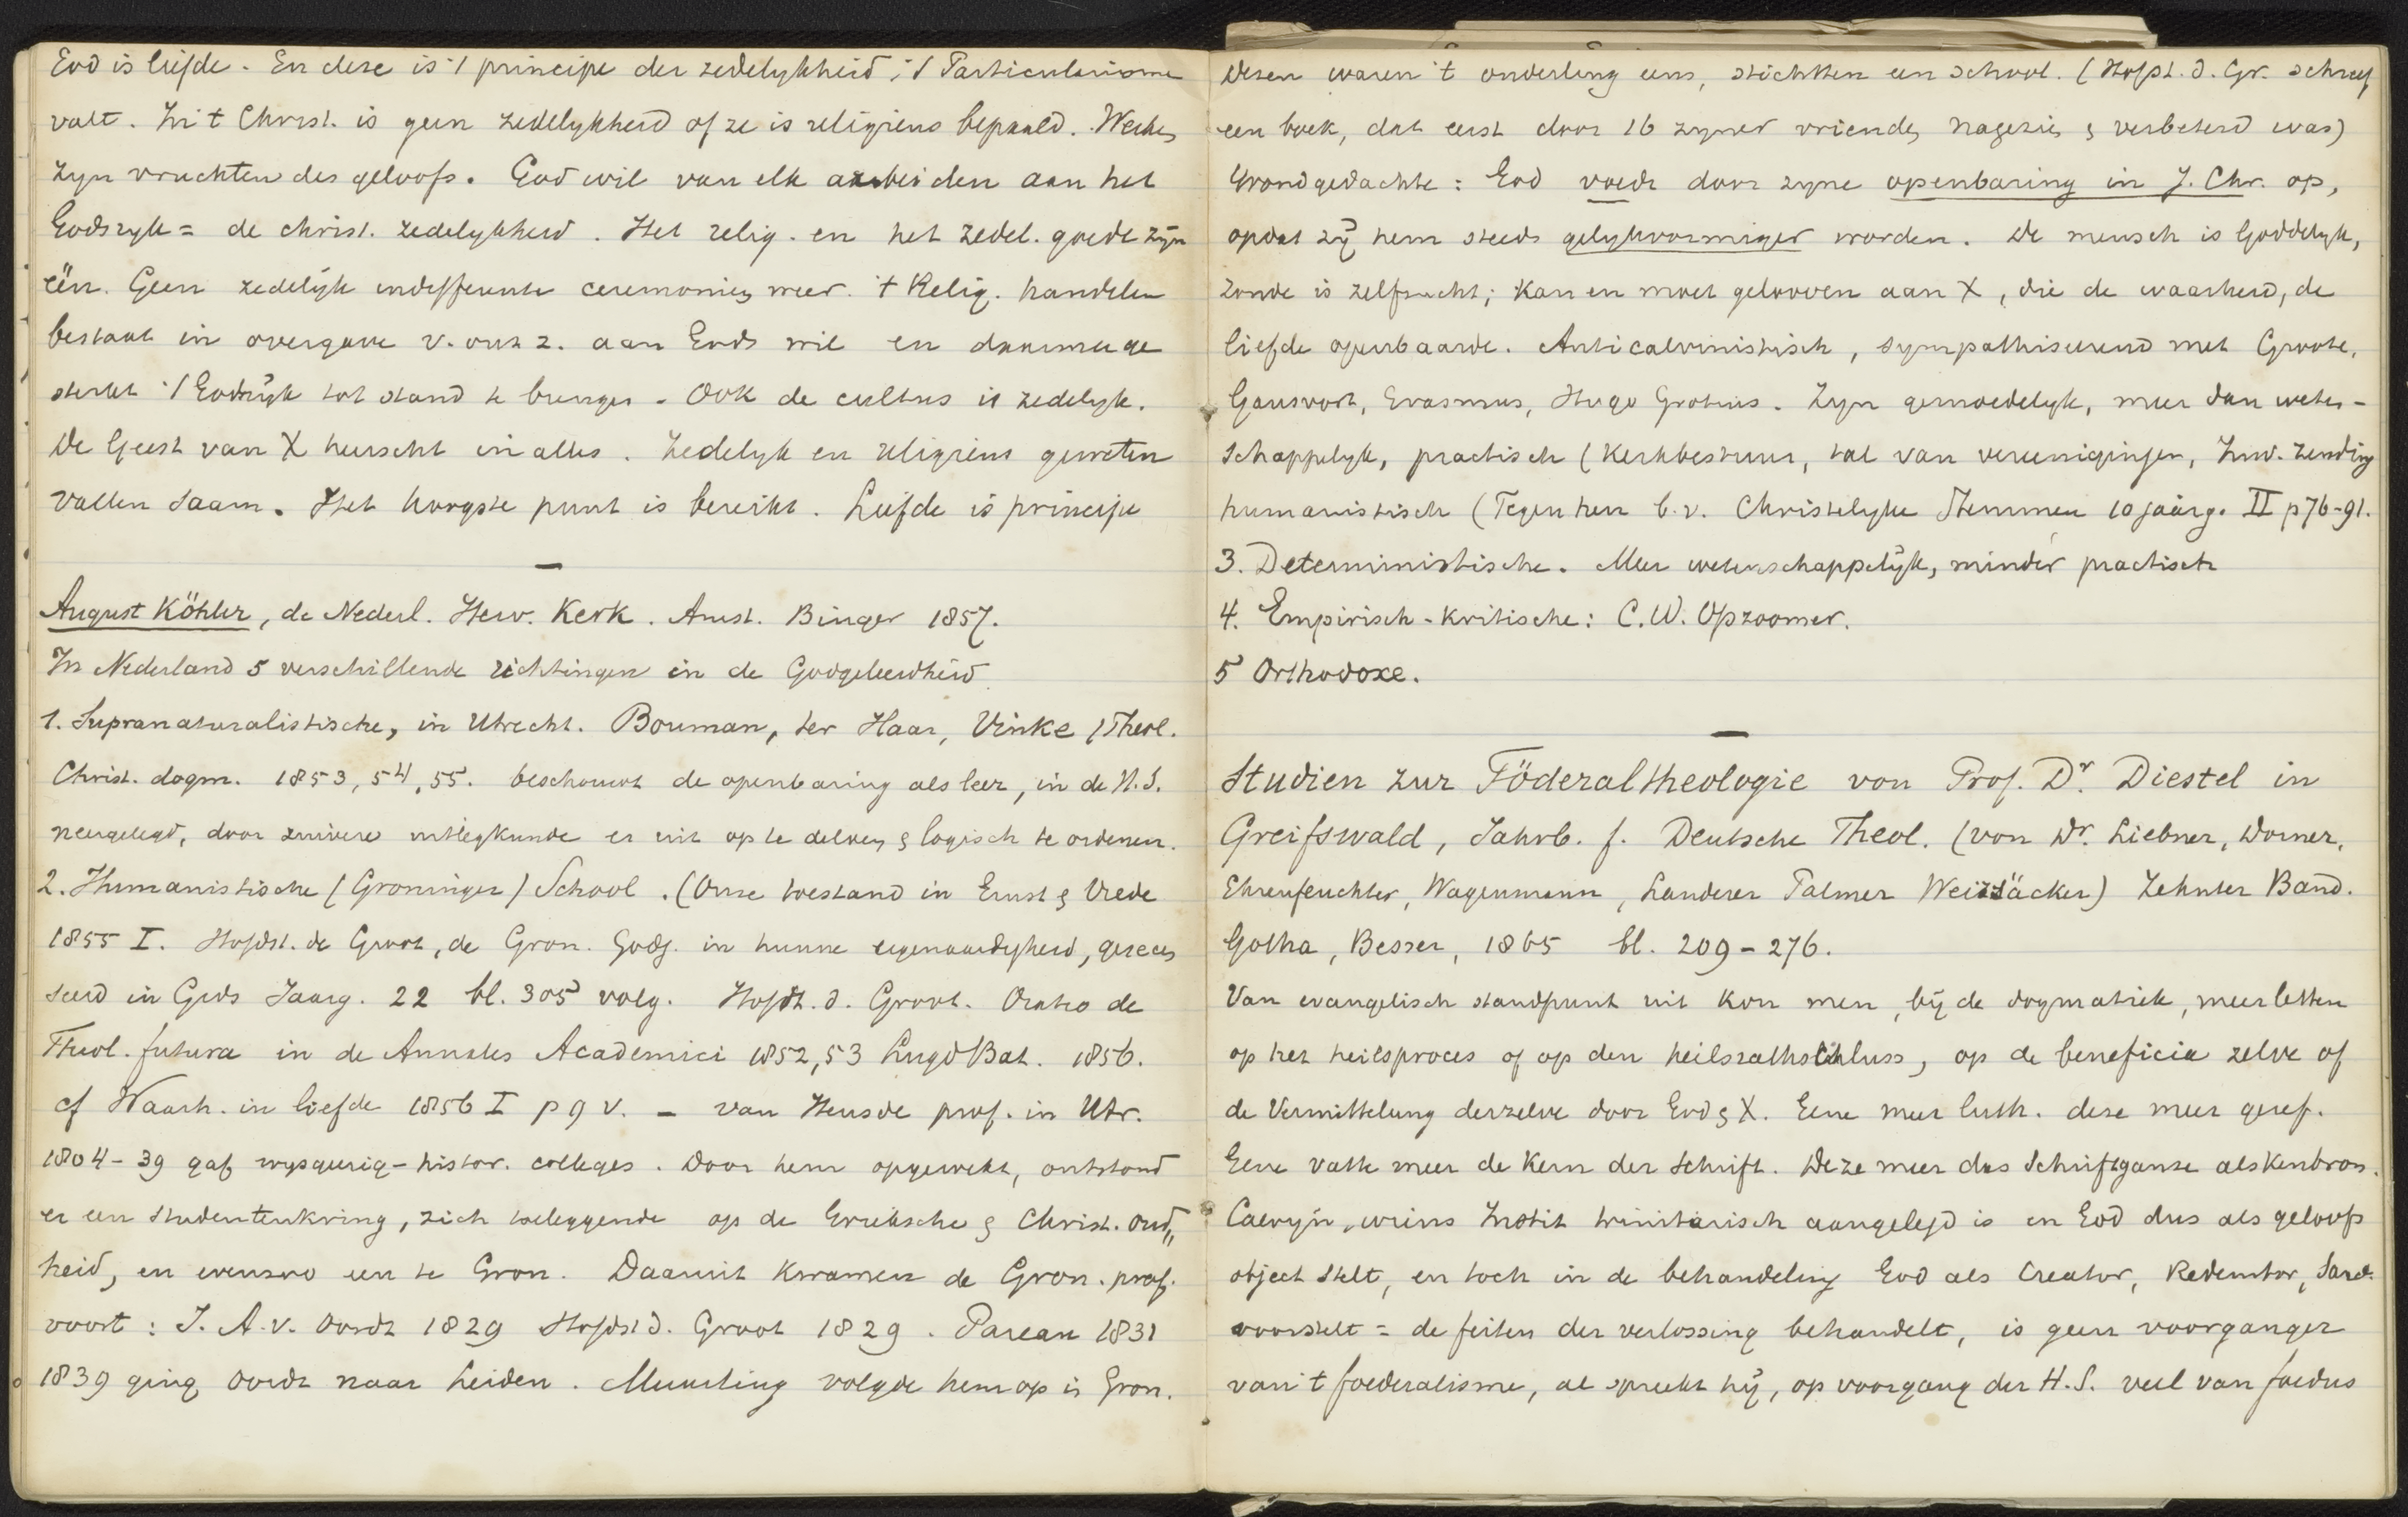 God is liefde. En deze is 't principe der zedelykheid; 't Particularisme
valt. In 't Christ. is geen zedelykheid of ze is religieus bepaald. Werken
zyn vruchten des geloofs. God wil van elk arbeiden aan het
Godsryk = de christ. zedelykheid. Het relig. en het zedel. goede zijn
één. Geen zedelijk indifferente ceremonien meer. 't Relig. handelen
bestaat in overgave v. ons z. aan Gods wil en daarmede
sterkt 't Godsrijk tot stand te brengen. Ook de cultus is zedelyk.
De Geest van X heerscht in alles. Zedelyk en religieus geweten
vallen saam. Het hoogste punt is bereikt. Liefde is principe
—
August Köhler, de Nederl. Herv. Kerk. Amst. Binger 1857.
In Nederland 5 verschillende richtingen in de Godgeleerdheid
1. Supranaturalistische, in Utrecht. Bouman, ter Haar, Vinke (Theol.
Christ. dogm. 1853, 54, 55. beschouwt de openbaring als leer, in de H.S.
neergelegd, door zuivere uitlegkunde er uit op te delven & logisch te ordenen.
2. Humanistische (Groninger) School. (Onze toestand in Ernst & Vrede
1855 I. Hofst. de Groot, de Gron. Godg. in hunne eigenaardigheid, gerecen
seerd in Gids Jaarg. 22 bl. 305 volg. Hofst. d. Groot. Oratio de
Theol. futura in de Annales Academici 1852,53 Lugd Bat. 1856.
cf Waarh. in liefde 1856 I p 9 v. – van Heusde prof. in Utr.
1804-39 gaf wysgeerig-histor. colleges. Door hem opgewekt, ontstond
er een studentenkring, zich toeleggende op de Grieksche & Christ. oud„
heid, en evenzoo een te Gron. Daaruit kwamen de Gron. prof.
voort: J. A. v. Oordt 1829 Hofst d. Groot 1829. Pareau 1831
1839 ging Oordt naar Leiden. Muurling volgde hem op in Gron.
Dezen waren 't onderling eens, stichtten een school. (Hofst. d. Gr. schreef
een boek, dat eerst door 16 zyner vrienden nagezien & verbeterd was)
Grondgedachte: God voedt door zyne openbaring in J. Chr. op,
opdat zij hem steeds gelykvormiger worden. De mensch is Goddelyk,
zonde is zelfzucht; kan en moet gelooven aan X, die de waarheid, de
liefde openbaarde. Anticalvinistisch, sympathiseerend met Groote,
Gansvort, Erasmus, Hugo Grotius. Zyn gemoedelyk, meer dan weten-
schappelyk, practisch (Kerkbestuur, tal van vereenigingen, Inw. Zending
humanistisch (Tegen hen b.v. Christelyke Stemmen 10 jaarg. II p 76-91.
3. Deterministische. Meer wetenschappelijk, minder practisch
4. Empirisch-kritische: C. W. Opzoomer.
5 Orthodoxe.
—
Studien zur Föderaltheologie von Prof. Dr. Diestel in
Greifswald, Jahrb. f. Deutsche Theol. (von Dr. Liebner, Dorner,
Ehrenfeuchter, Wagenmann, Landerer Palmer Weizsäcker) Zehnter Band.
Gotha, Besser, 1865 bl. 209-276.
Van evangelisch standpunt uit kon men, bij de dogmatiek, meer letten
op het heilsproces of op den heilsrathschluss, op de beneficia zelve of
de Vermittelung derzelve door God & X. Gene meer luth. deze meer geref.
Gene vatte meer de Kern der Schrift. Deze meer das Schriftganze als kenbron.
Calvyn, wiens Instit trinitarisch aangelegd is en God dus als geloofs
object stelt, en toch in de behandeling God als Creator, Redemtor, Sanct.
voorstelt = de feiten der verlossing behandelt, is geen voorganger
van 't foederalisme, al spreekt hij, op voorgang der H.S. veel van foedus